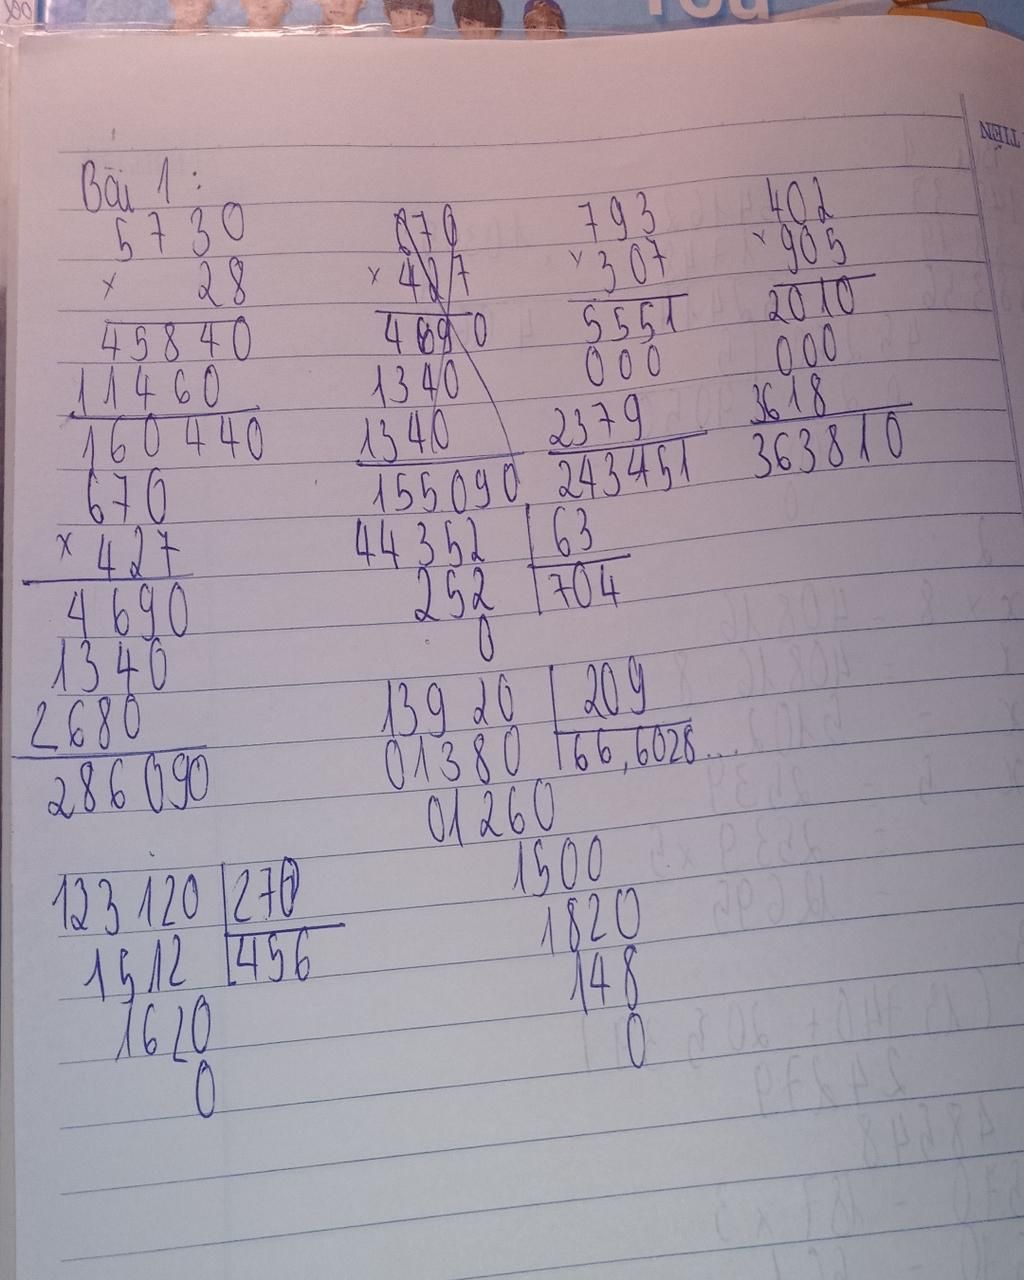 You
TIỀN
Bài 1:
5730
× 28
45840
11460
160440
670
× 427
4690
1340
1340
155090
793
× 307
5551
000
2379
243451
402
× 905
2010
000
3618
363810
670
× 427
4690
1340
2680
286090
44352 63
252 704
0
13920 209
01380 66,6028...
01260
1500
1820
148
0
123120 270
1512 456
1620
0